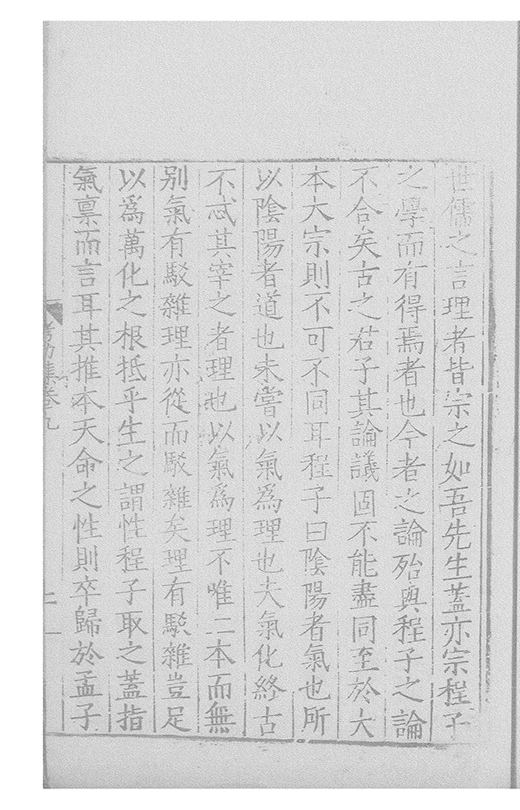 世儒之言理者皆宗之如吾先生蓋亦宗程子
之學而有得焉者也今者之論殆與程子之論
不合矣古之君子其論議固不能盡同至於大
本大宗則不可不同耳程子曰陰陽者氣也所
以陰陽者道也未嘗以氣為理也夫氣化終古
不忒其宰之者理也以氣為理不唯二本而無
别氣有駁雜理亦從而駁雜矣理有駁雜豈足
以為萬化之根抵乎生之謂性程子取之蓋指
氣禀而言耳其推本天命之性則卒歸於孟子
集卷九